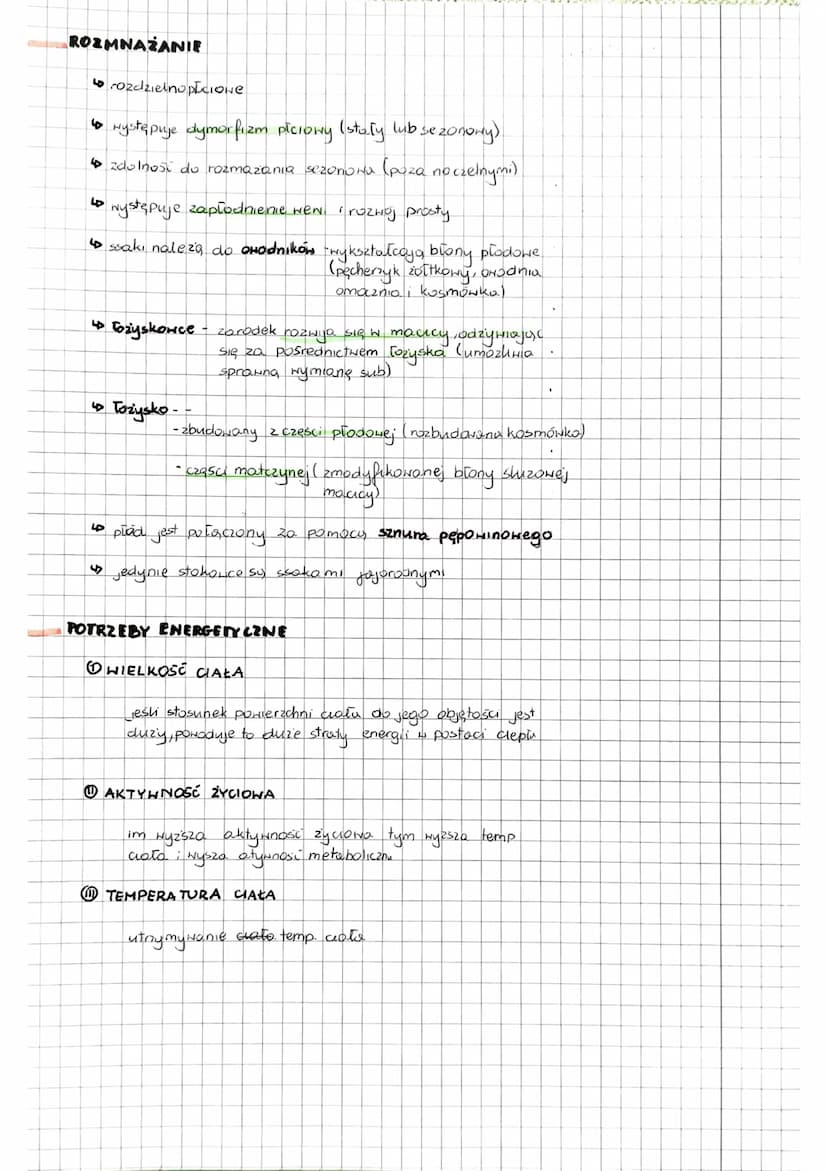 ROZMNAŻANIE
↳ rozdzielnopłciowe
↳ występuje dymorfizm płciowy (stały lub sezonowy)
↳ zdolność do rozmażania sezonowa (poza naczelnymi)
↳ występuje zapłodnienie wew. i rozwój prosty
↳ ssaki należą do owodniów - wykształcają błony płodowe
(pęcherzyk żółtkowy, owodnia
omocznia i kosmówka)
↳ łożyskowce - zarodek rozwija się w macicy, odżywiając
się za pośrednictwem łożyska (umożliwia
sprawną wymianę sub)
↳ łożysko - -
- zbudowany z części płodowej (rozbudowana kosmówka)
- części matczynej (zmodyfikowanej błony śluzowej
macicy)
↳ płód jest połączony za pomocą sznura pępowinowego
↳ jedynie stekowce są ssakami jajorodnymi
POTRZEBY ENERGETYCZNE
I WIELKOŚĆ CIAŁA
jeśli stosunek powierzchni ciała do jego objętości jest
duży, powoduje to duże straty energii w postaci ciepła
II AKTYWNOŚĆ ŻYCIOWA
im wyższa aktywność życiowa tym wyższa temp
ciała i wysza atywność metaboliczna
III TEMPERATURA CIAŁA
utrzymywanie ciało temp. ciała